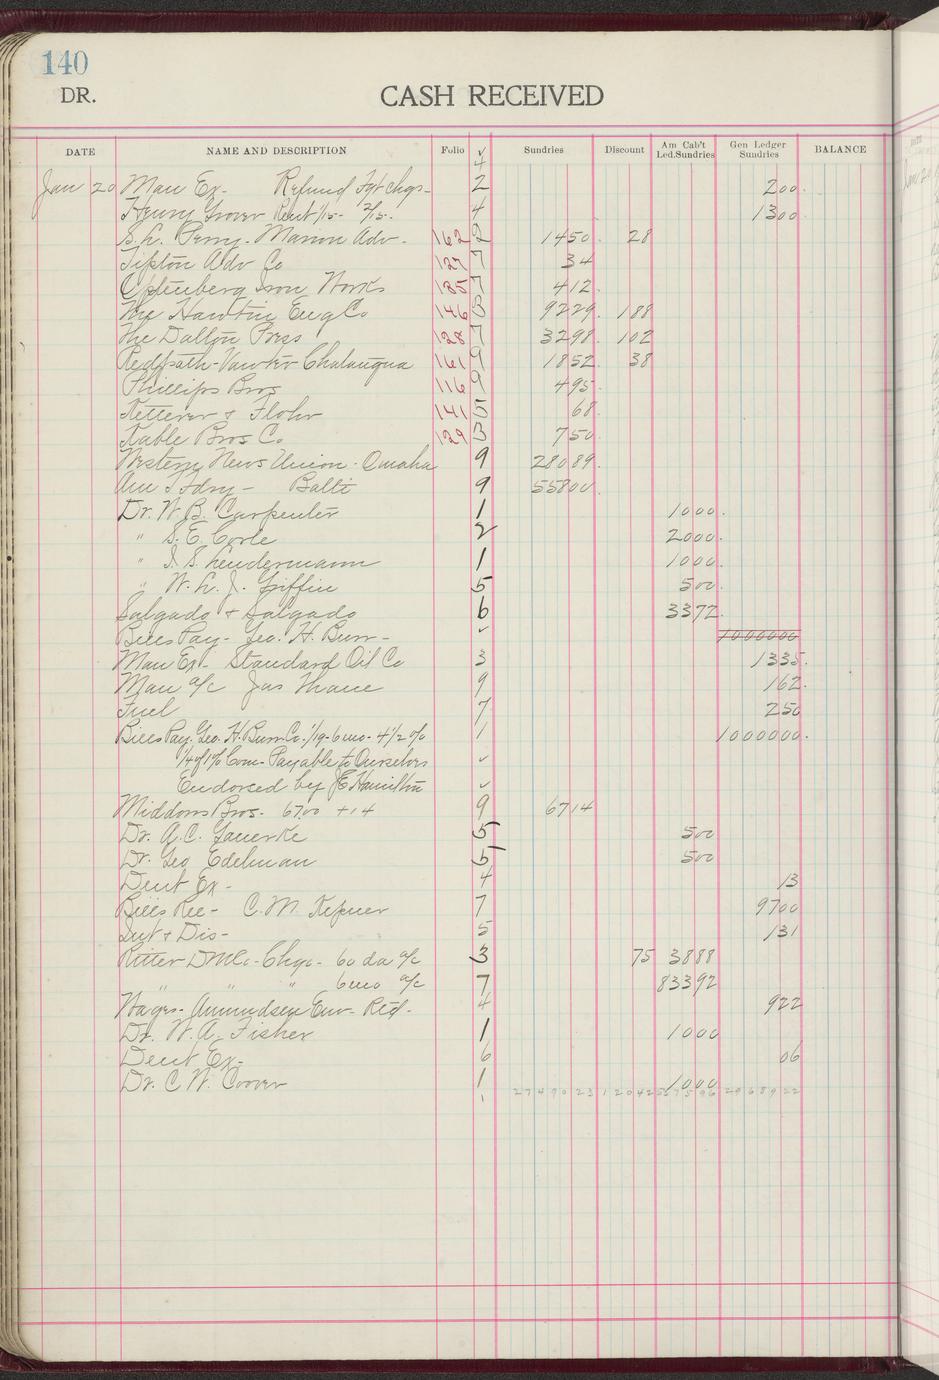 140
DR. CASH RECEIVED
DATE NAME AND DESCRIPTION Folio ✓ Sundries Discount Am Cab't Led.Sundries Gen Ledger Sundries BALANCE
4
Jan 20 Man Ex- Refund Fgt chgs- 2 200.
Henry Grover Rent 1/15- 2/15- 4 1300
S. L. Perry- Marion Adv. 162 2 1450. 28
Tipton Adv Co 127 7 34
Oppenberg Iron Works 185 7 412.
The Hawtin Eng Co 146 3 9229. 188
The Dalton Press 128 7 3298. 102
Redpath-Vawter Chatauqua 161 9 1852. 38
Phillips Bros 116 9 495.
Ketterer & Flohr 141 5 68.
Kable Bros Co 129 3 750
Western News Union - Omaha 9 28089.
Am T Fdry - Balti 9 55800.
Dr. W. B. Carpenter 1 1000.
" S. E. Corle 2 2000.
" I. S. Lendermann 1 1000.
" W. L. J. Griffin 5 500.
Salgado & Salgado 6 3372.
Bills Pay- Geo. H. Burr- ✓ 1000000
Man Ex- Standard Oil Co 3 1335.
Man a/c Jas Thane 9 162.
Fuel 7 250
Bills Pay. Geo. H. Burr Co. 1/19- 6 mo- 4 1/2 % 1 1000000.
1/4 of 1% Com- Payable to Ourselves ✓
Endorsed by JE Hamilton ✓
Middons Bros. 67.00 + 14 9 6714
Dr. A. C. Gauerke 5 500
Dr. Geo Edelman 5 500
Dent Ex- 4 13
Bills Rec- C. M. Kepner 7 9700
Int & Dis- 5 131
Ritter D M Co- Chgo- 60 da a/c 3 75 3888
" " " 6 mo a/c 7 83392
Wages- Amundsen Env- Ret'd- 4 922
Dr. W. A. Fisher 1 1000
Dent Ex- 6 06
Dr. C W. Coover 1 1000